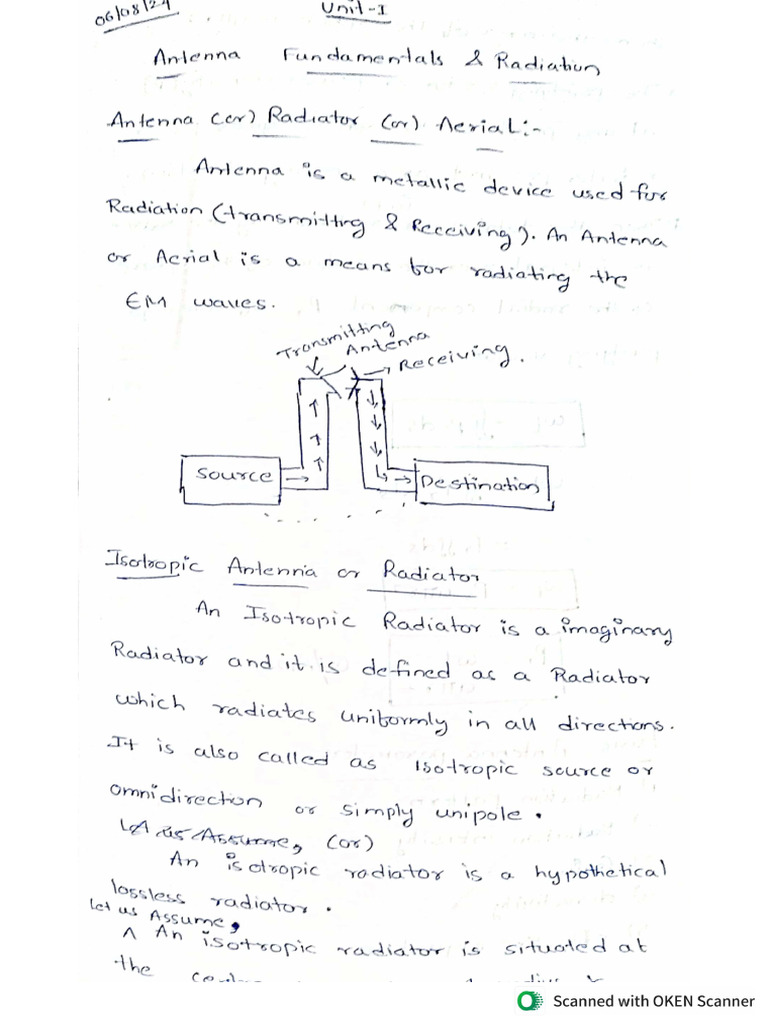 06/08/24
Unit-I
Antenna Fundamentals & Radiation
Antenna (or) Radiator (or) Aerial:-
Antenna is a metallic device used for
Radiation (transmitting & Receiving). An Antenna
or Aerial is a means for radiating the
EM waves.
Transmitting
Antenna
Receiving.
Source
Destination
Isotropic Antenna or Radiator
An Isotropic Radiator is a imaginary
Radiator and it is defined as a Radiator
which radiates uniformly in all directions.
It is also called as isotropic source or
omnidirection or simply unipole.
Let us Assume, (or)
An isotropic radiator is a hypothetical
lossless radiator.
let us Assume,
^ An isotropic radiator is situated at
the
Scanned with OKEN Scanner